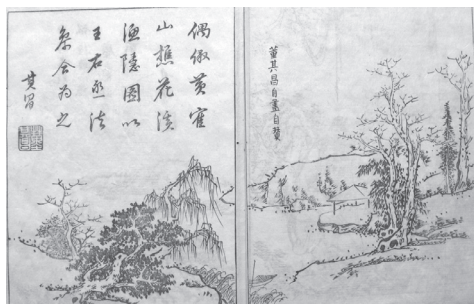 董其昌自畫自贊
偶倣黄寉
山樵花溪
漁隱圖以
王右丞法
叅合為之
其昌